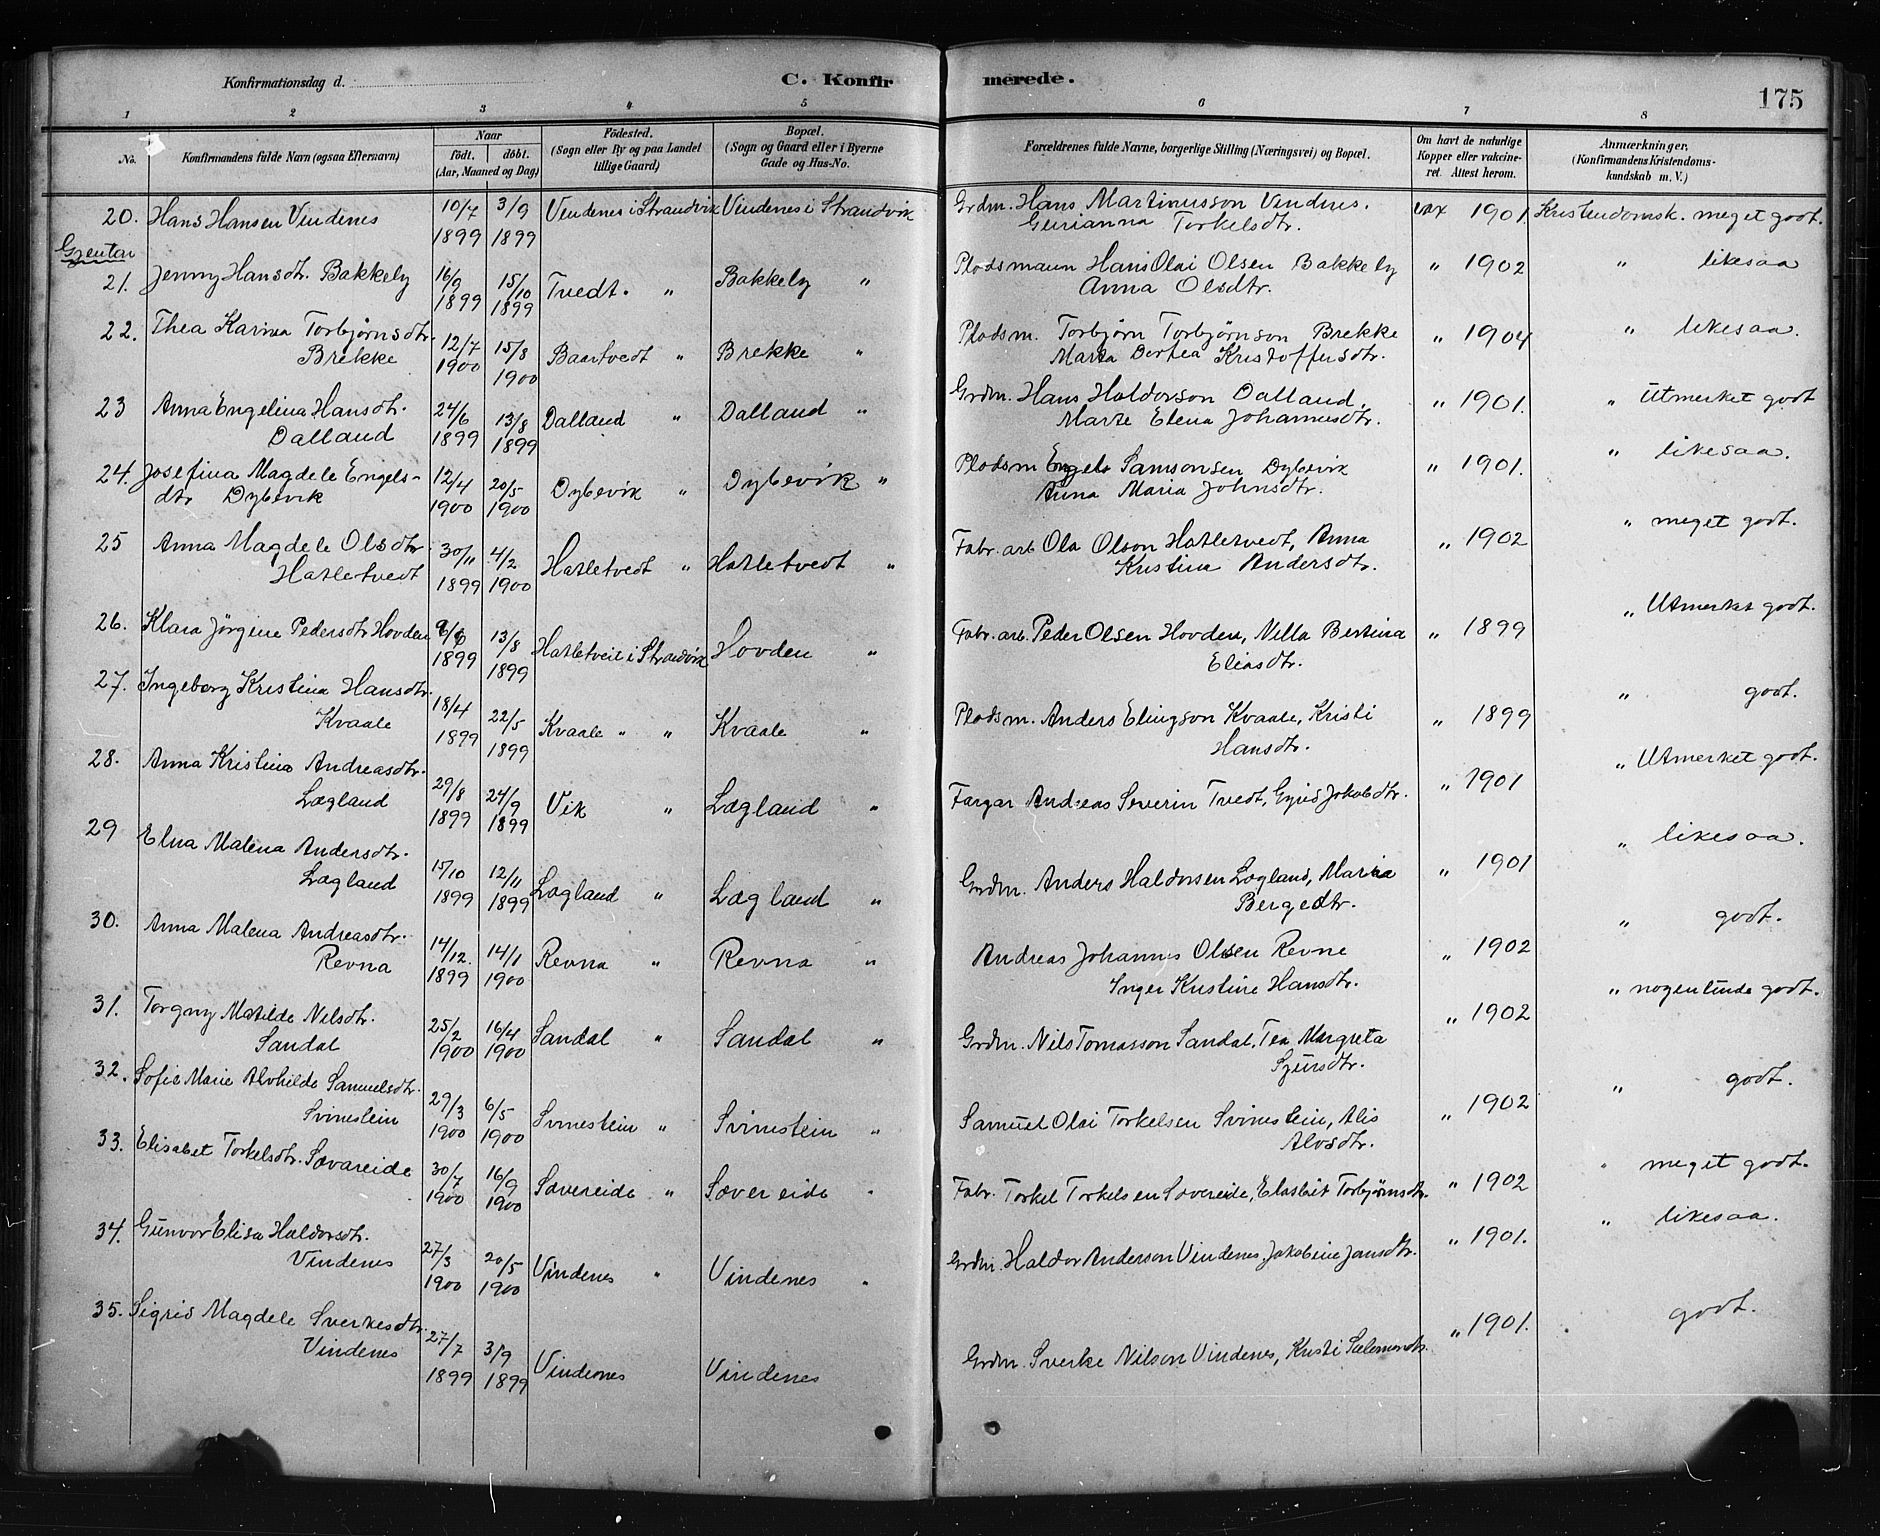 Konfirmationsdag d. C. Konfirmerede. 175
1 2 3 4 5 6 7 8
No. Konfirmandens fulde Navn (ogsaa Efternavn) Naar födt. döbt. (Aar, Maaned og Dag) Födested. (Sogn eller By og paa Landet tillige Gaard) Bopæl. (Sogn og Gaard eller i Byerne Gade og Hus-No. Forældrenes fulde Navne, borgerlige Stilling (Næringsvei) og Bopæl. Om havt de naturlige Kopper eller vakcineret. Attest herom. Anmærkninger. (Konfirmandens Kristendomskundskab m. V.)
20. Hans Hansen Vindenes 10/7 1899 3/9 1899 Vindenes i Strandvik Vindenes i Strandvik Grdm. Hans Martinusson Vindnes. vax 1901. Kristendomsk. meget godt.
Gurianna Torkelsdtr.
Gjentar
21. Jenny Hansdtr. Bakkely 16/9 1899 15/10 1899 Tvedt. " Bakkely " Pladsmann Hans Olai Olsen Bakkely " 1902 " likesaa
Anna Olsdtr.
22. Thea Karina Torbjørnsdtr. Brekke 12/7 1900 15/8 1900 Baartvedt " Brekke " Pladsm. Torbjørn Torbjørnson Brekke " 1904 " likesaa.
Marta Dortea Kristoffersdtr.
23 Anna Engelina Hansdtr. Dalland 24/6 1899 13/8 1899 Dalland " Dalland " Grdm. Hans Haldorson Dalland. " 1901. " Utmerket godt
Marte Elena Johannesdtr.
24. Josefina Magdele Engelsdtr Dybevik 12/4 1900 20/5 1900 Dybevik " Dybevik " Pladsm Engels Samsonsen Dybevik " 1901. " likesaa.
Anna Maria Johnsdtr.
25 Anna Magdele Olsdtr. Hatletvedt 30/11 1899 4/2 1900 Hatletvedt " Hatletvedt " Fabr. arb Ola Olson Hatletvedt, Anna " 1902 " meget godt.
Kristina Andersdtr.
26. Klara Jörgine Pedersdtr Hovden 1899 13/8 1899 Hatletveit i Strandvik Hovden " Fabr. arb. Peder Olsen Hovden, Nilla Bertina " 1899 " Utmerket godt.
Eliasdtr.
27. Ingeborg Kristina Hansdtr. Kvaale 18/4 1899 22/5 1899 Kvaale " " Kvaale " Pladsm. Anders Elingson Kvaale, Kristi " 1899 " godt.
Hansdtr.
28. Anna Kristina Andreasdtr. Lægland 29/8 1899 24/9 1899 Vik " Lægland " Fargar Andreas Severin Tvedt, Gyrid Jakobdtr. " 1901 " Utmerket godt.
29 Elna Malena Andersdtr. Lægland 15/10 1899 12/11 1899 Lægland " Lægland " Grdm. Anders Haldorsen Lægland, Maria " 1901 " likesaa.
Bergedtr.
30. Anna Malena Andreasdtr. Revna 14/12. 1899 14/1 1900 Revna " Revna " Andreas Johannes Olsen Revne " 1902 " godt.
Inger Kristine Hansdtr.
31. Torgny Matilde Nilsdtr. Sandal 25/2 1900 16/4 1900 Sandal " Sandal " Grdm. Nils Tomasson Sandal, Tea Margreta " 1902 " nogenlunde godt.
Sjursdtr.
32. Sofie Marie Alvhilde Samuelsdtr. Svinestein 29/3 1900 6/5 1900 Svinestein " Svinestein " Samuel Olai Torkelsen Svinestein, Alis " 1902 " godt.
Alvsdtr.
33. Elisabet Torkelsdtr. Sævareide 30/7 1900 16/9 1900 Sævereide " Sævereide " Fabr. Torkel Torkelsen Sævereide, Elasbit Torbjørnsdtr. " 1902 " meget godt.
34. Gunvor Elisa Haldorsdtr. Vindenes 27/3 1900 20/5 1900 Vindenes " Vindenes " Grdm. Haldor Anderson Vindenes, Jakobine Jansdtr. " 1901. " likesaa.
35. Sigrid Magdele Sverkesdtr. Vindenes 27/7 1899 3/9 1899 Vindenes Vindenes Grdm. Sverke Nilson Vindenes, Kristi Salemondtr. " 1901. " godt.